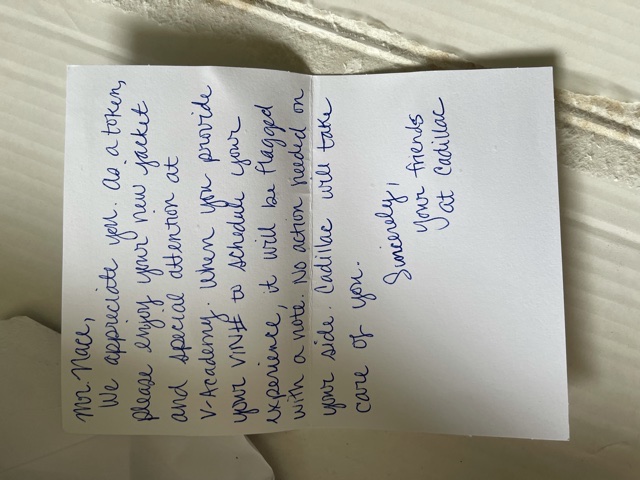 Mr. Nace,
We appreciate you. As a token,
please enjoy your new jacket
and special attention at
V-Academy. When you provide
your VIN# to schedule your
experience, it will be flagged
with a note. No action needed on
your side. Cadillac will take
care of you.
Sincerely,
Your friends
at Cadillac